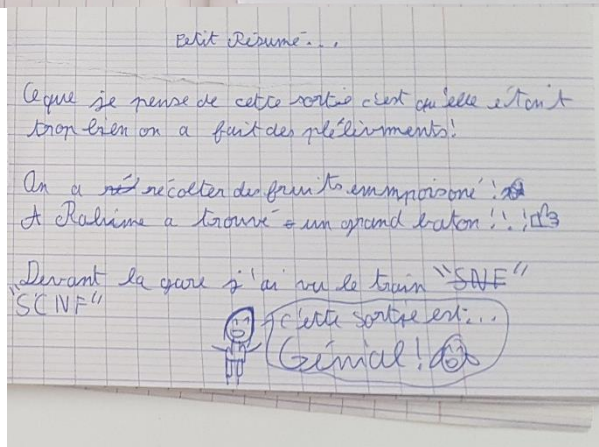 Petit Résumé...
Ce que je pense de cette sortie c'est qu'elle étant
trop bien on a fait des plélivments!
On a récolter des fruits emmpoisoné!
A Rahime a trouvé un grand baton!!!
Devant la gare j'ai vu le train "SNF"
"SCNF"
c'ette sortie est...
Génial!